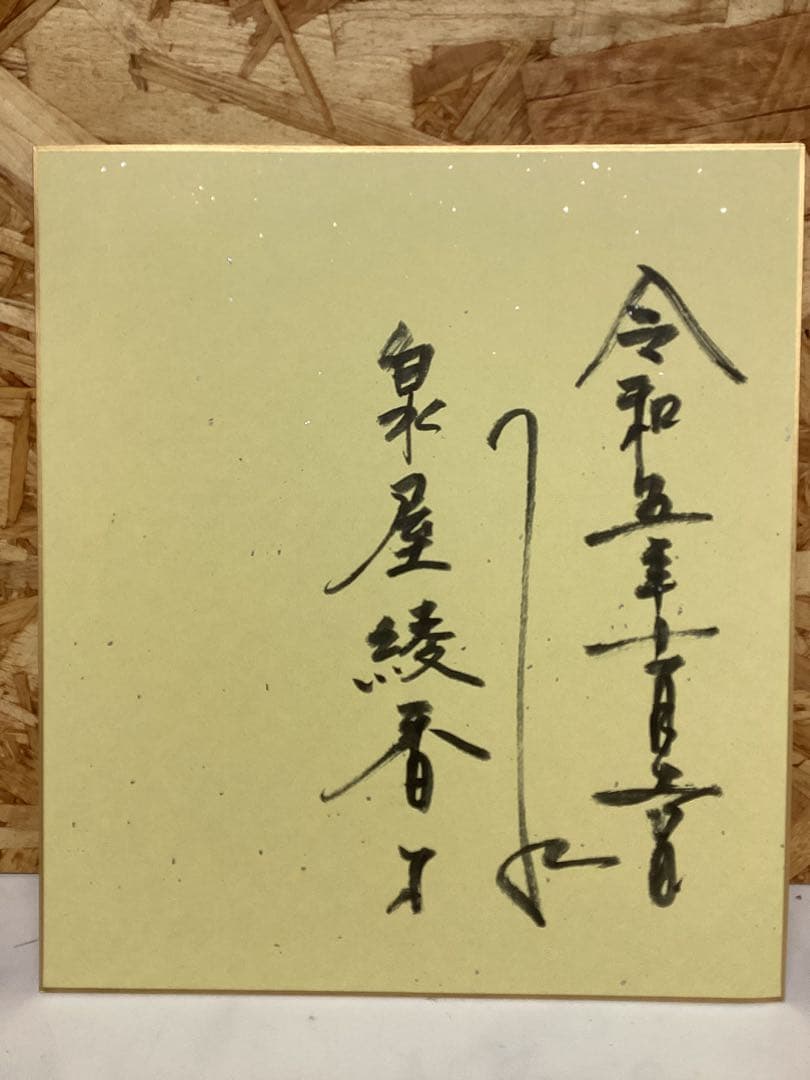 令和五年十一月六日
泉屋綾香